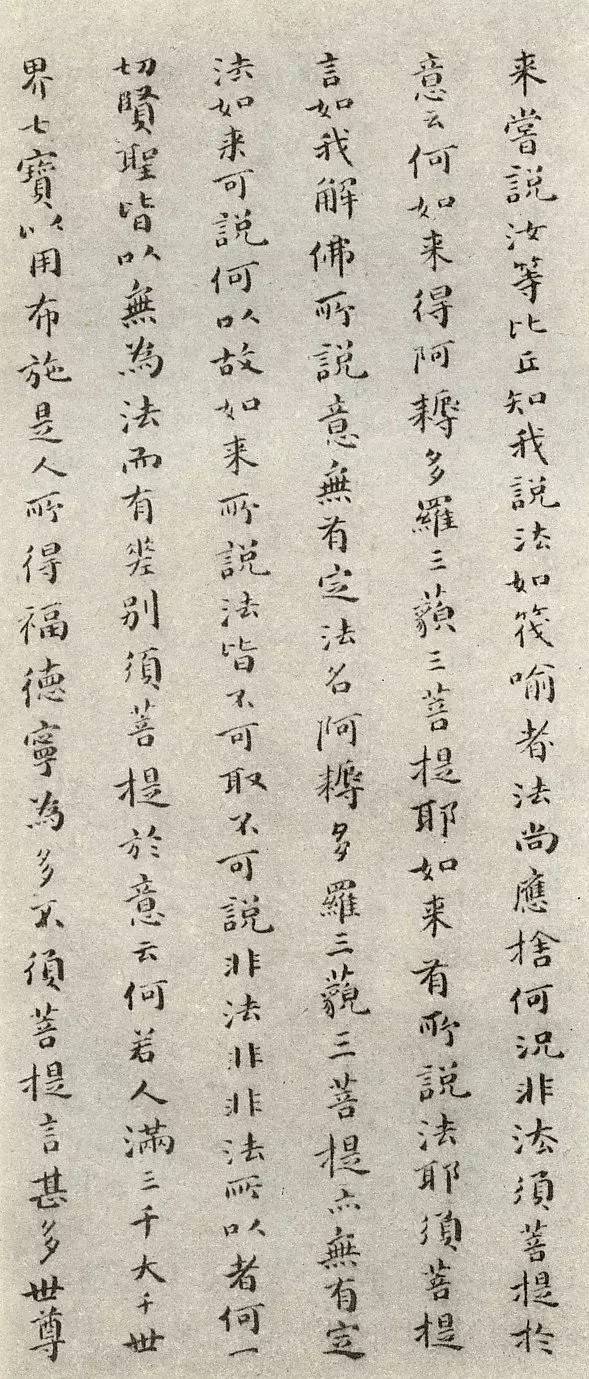 来嘗說汝等比丘知我說法如筏喻者法尚應捨何況非法須菩提於
意云何如来得阿耨多羅三藐三菩提耶如来有所說法耶須菩提
言如我解佛所說意無有定法名阿耨多羅三藐三菩提亦無有定
法如来可說何以故如来所說法皆不可取不可說非法非非法所以者何一
切賢聖皆以無為法而有差別須菩提於意云何若人滿三千大千世
界七寶以用布施是人所得福德寧為多不須菩提言甚多世尊